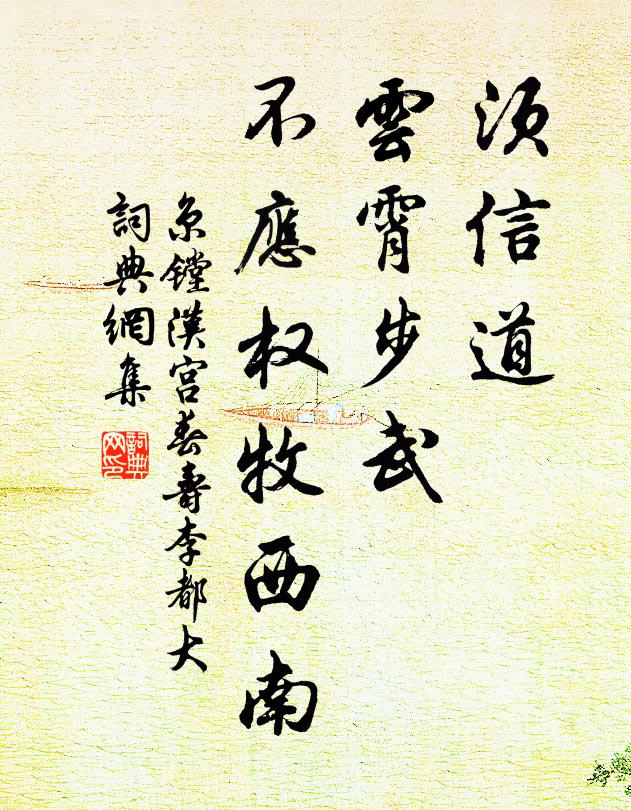 須信道
雲霄步武
不應权牧西南
京鏜漢宮春壽李都大
詞典網集
詞典网印